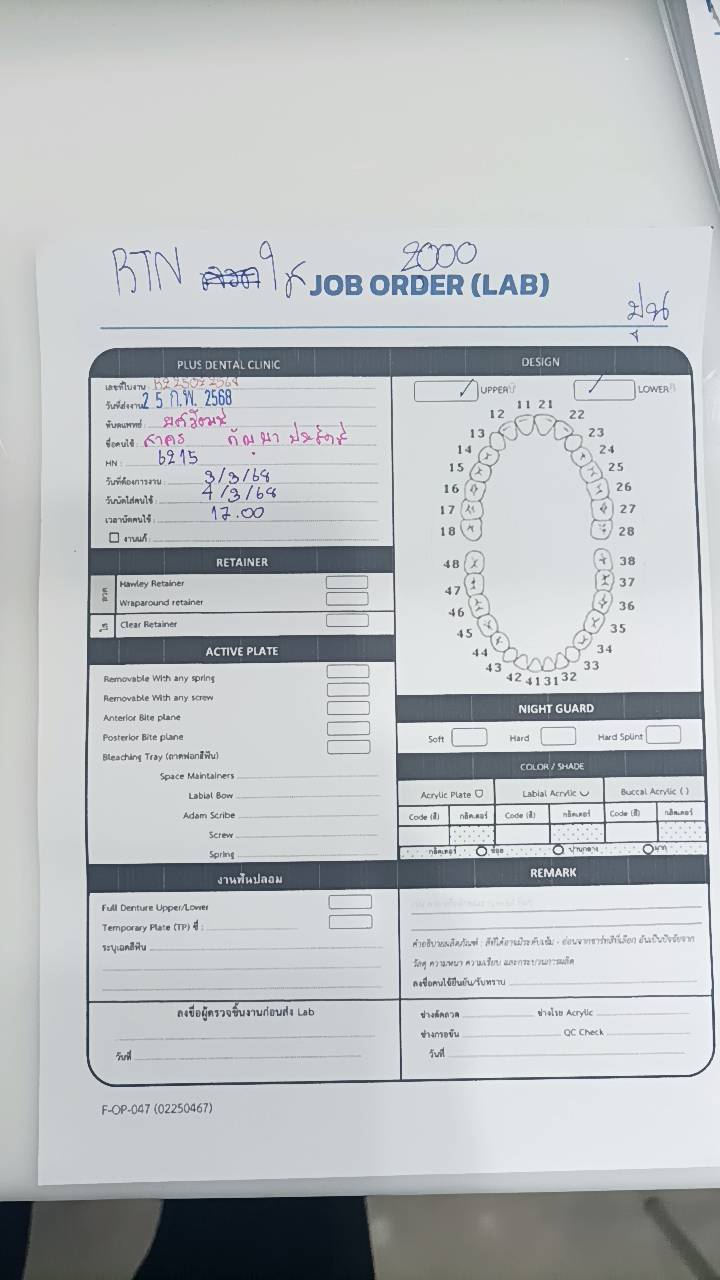 RTN ใส 2000
JOB ORDER (LAB)
PLUS DENTAL CLINIC
เลขที่ใบงาน
วันที่ส่งงาน 25 ก.พ. 2568
ทันตแพทย์
ชื่อคนไข้ สาคร กัณหา
HN : 6215
วันที่ต้องการงาน : 3/3/68
วันนัดใส่คนไข้ : 4/3/68
เวลานัดคนไข้ : 17.00
งานแก้ :
RETAINER
ลวด
Hawley Retainer
Wraparound retainer
ใส
Clear Retainer
ACTIVE PLATE
Removable With any spring
Removable With any screw
Anterior Bite plane
Posterior Bite plane
Bleaching Tray (ถาดฟอกสีฟัน)
Space Maintainers
Labial Bow
Adam Scribe
Screw
Spring
งานฟันปลอม
Full Denture Upper/Lower
Temporary Plate (TP) ซี่ :
ระบุเฉดสีฟัน
ลงชื่อผู้ตรวจชิ้นงานก่อนส่ง Lab
วันที่
DESIGN
✓ UPPER ✓ LOWER
11 21
12 22
13 23
14 24
15 25
16 26
17 27
18 28
48 38
47 37
46 36
45 35
44 34
43 33
42 41 31 32
NIGHT GUARD
Soft Hard Hard Splint
COLOR / SHADE
Acrylic Plate Labial Acrylic Buccal Acrylic ( )
Code (สี) กลิตเตอร์ Code (สี) กลิตเตอร์ Code (สี) กลิตเตอร์
กลิตเตอร์ น้อย ปานกลาง มาก
REMARK
คำอธิบายผลิตภัณฑ์ : สีที่ได้อาจมีระดับเข้ม - อ่อนจากชาร์ทสีที่เลือก อันเป็นปัจจัยจาก
วัสดุ ความหนา ความเรียบ และกระบวนการผลิต
ลงชื่อคนไข้ยืนยัน/รับทราบ
ช่างดัดลวด ช่างโรย Acrylic
ช่างกรอขัน QC Check
วันที่
F-OP-047 (02250467)